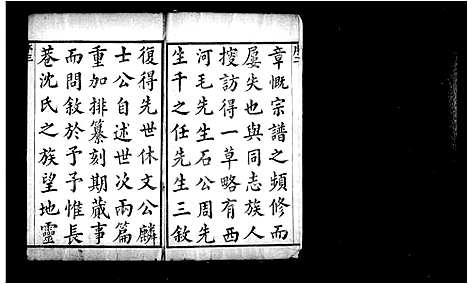 章慨宗譜之頻修而
屢失也與同志族人
搜訪得一草略有西
河毛先生石公周先
生千之任先生三敘
復得先世休文公麟
士公自述世次兩篇
重加排纂刻期蕆事
而問敘於予予惟長
巷沈氏之族望地靈